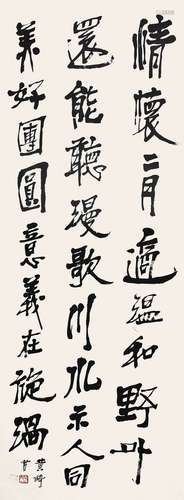 情懷二月適溫和野艸
還能聽漫歌川水示人同
美好團圓意義在旋渦